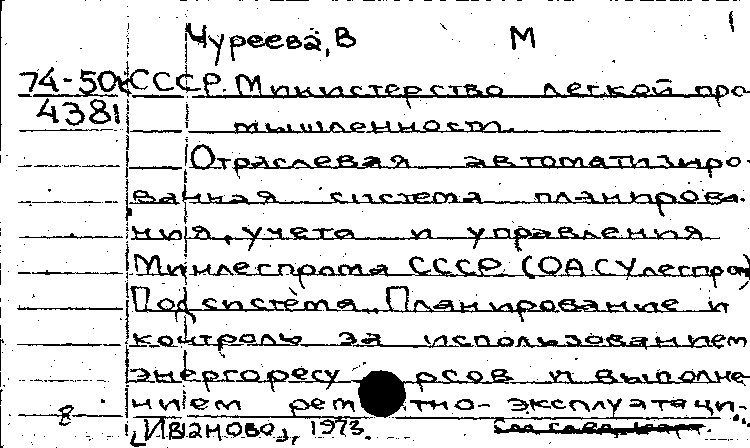 1
Чуреева, В М
74-50к СССР. Министерство легкой про
4381 мышленност.
Отраслевая автоматизиро-
ванная система планирова-
ния, учета и управления
Минлегпрома СССР (ОАСУлегпром)
Подсистема „Планирование и
контроль за использованием
энергоресу рсов и выполне
8 нием рем тно-эксплуатаци.
„Иваново„ 1973.